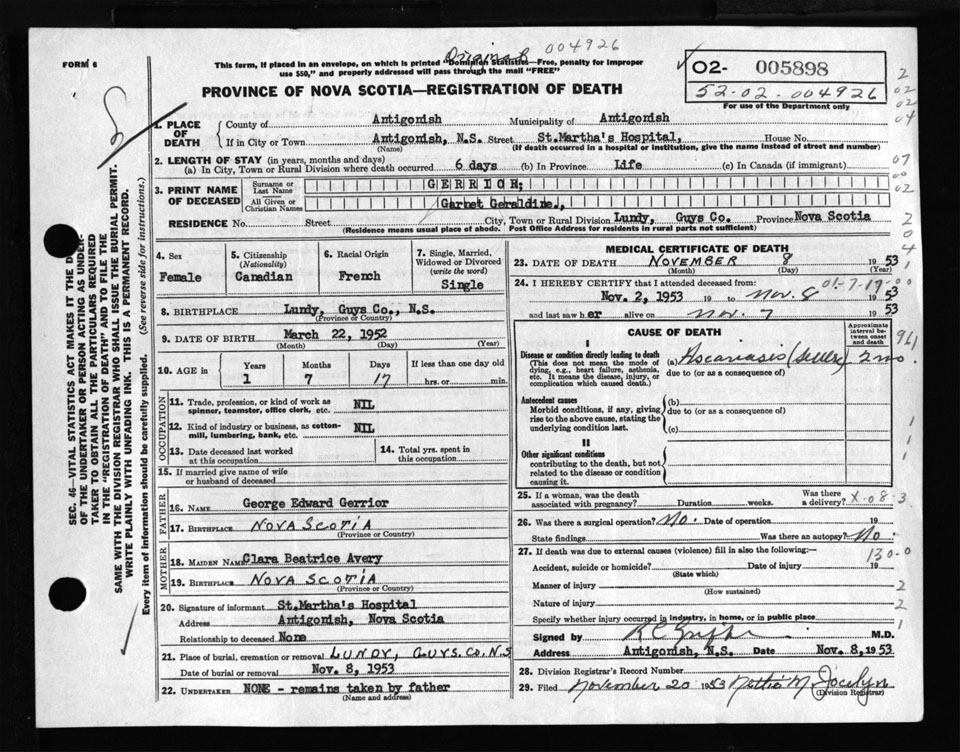 Original 004926
FORM 6
This form, if placed in an envelope, on which is printed "Dominion Statistics—Free, penalty for improper
use $50," and properly addressed will pass through the mail "FREE"
O2- 005898
52-02-004926
For use of the Department only
PROVINCE OF NOVA SCOTIA—REGISTRATION OF DEATH
SEC. 46—VITAL STATISTICS ACT MAKES IT THE
OF THE UNDERTAKER OR PERSON ACTING AS UNDER-
TAKER TO OBTAIN ALL THE PARTICULARS REQUIRED
IN THE "REGISTRATION OF DEATH" AND TO FILE THE
SAME WITH THE DIVISION REGISTRAR WHO SHALL ISSUE THE BURIAL PERMIT.
WRITE PLAINLY WITH UNFADING INK. THIS IS A PERMANENT RECORD.
Every item of information should be carefully supplied. (See reverse side for instructions.)
1. PLACE OF DEATH
County of Antigonish Municipality of Antigonish
If in City or Town Antigonish, N.S. Street St.Martha's Hospital, House No.
(Name) (If death occurred in a hospital or institution, give the name instead of street and number)
2. LENGTH OF STAY (in years, months and days)
(a) In City, Town or Rural Division where death occurred 6 days (b) In Province Life (c) In Canada (if immigrant)
3. PRINT NAME OF DECEASED
Surname or Last Name GERRIOR;
All Given or Christian Names Garnet Geraldine.,
RESIDENCE No. Street City, Town or Rural Division Lundy, Guys Co. Province Nova Scotia
(Residence means usual place of abode. Post Office Address for residents in rural parts not sufficient)
4. Sex
Female
5. Citizenship
(Nationality)
Canadian
6. Racial Origin
French
7. Single, Married,
Widowed or Divorced
(write the word)
Single
8. BIRTHPLACE Lundy, Guys Co., N.S.
(Province or Country)
9. DATE OF BIRTH March 22, 1952
(Month) (Day) (Year)
10. AGE in
Years Months Days If less than one day old
1 7 17 hrs. or min.
OCCUPATION
11. Trade, profession, or kind of work as
spinner, teamster, office clerk, etc. NIL
12. Kind of industry or business, as cotton-
mill, lumbering, bank, etc. NIL
13. Date deceased last worked
at this occupation
14. Total yrs. spent in
this occupation
15. If married give name of wife
or husband of deceased
FATHER
16. NAME George Edward Gerrior
17. BIRTHPLACE NOVA SCOTIA
(Province or Country)
MOTHER
18. MAIDEN NAME Clara Beatrice Avery
19. BIRTHPLACE NOVA SCOTIA
(Province or Country)
20. Signature of informant St.Martha's Hospital
Address Antigonish, Nova Scotia
Relationship to deceased None
21. Place of burial, cremation or removal LUNDY, GUYS. CO. N.S
Date of burial or removal Nov. 8, 1953
22. UNDERTAKER NONE - remains taken by father
(Name and address)
MEDICAL CERTIFICATE OF DEATH
23. DATE OF DEATH NOVEMBER 8 1953
(Month) (Day) (Year)
24. I HEREBY CERTIFY that I attended deceased from: 01-7-17-00
Nov. 2, 1953 19 to Nov. 8 1953
and last saw her alive on Nov. 7 1953
CAUSE OF DEATH
Approximate
interval be-
tween onset
and death
I
Disease or condition directly leading to death
(This does not mean the mode of
dying, e.g., heart failure, asthenia,
etc. It means the disease, injury, or
complication which caused death.)
(a) Ascariasis 2 mo.
due to (or as a consequence of)
Antecedent causes
Morbid conditions, if any, giving
rise to the above cause, stating the
underlying condition last.
(b)
due to (or as a consequence of)
(c)
II
Other significant conditions
contributing to the death, but not
related to the disease or condition
causing it.
25. If a woman, was the death
associated with pregnancy? Duration weeks. Was there
a delivery? X-08-3
26. Was there a surgical operation? No. Date of operation 19
State findings Was there an autopsy? No.
27. If death was due to external causes (violence) fill in also the following:—
130-0
Accident, suicide or homicide? Date of injury 19
(State which)
Manner of injury
(How sustained)
Nature of injury
Specify whether injury occurred in industry, in home, or in public place
Signed by M.D.
Address Antigonish, N.S. Date Nov. 8, 1953
28. Division Registrar's Record Number
29. Filed November 20 1953 Nettie M. Jocelyn
(Division Registrar)
2
02
02
04
07
00
02
2
0
4
1
961
1
1
1
2
2
1